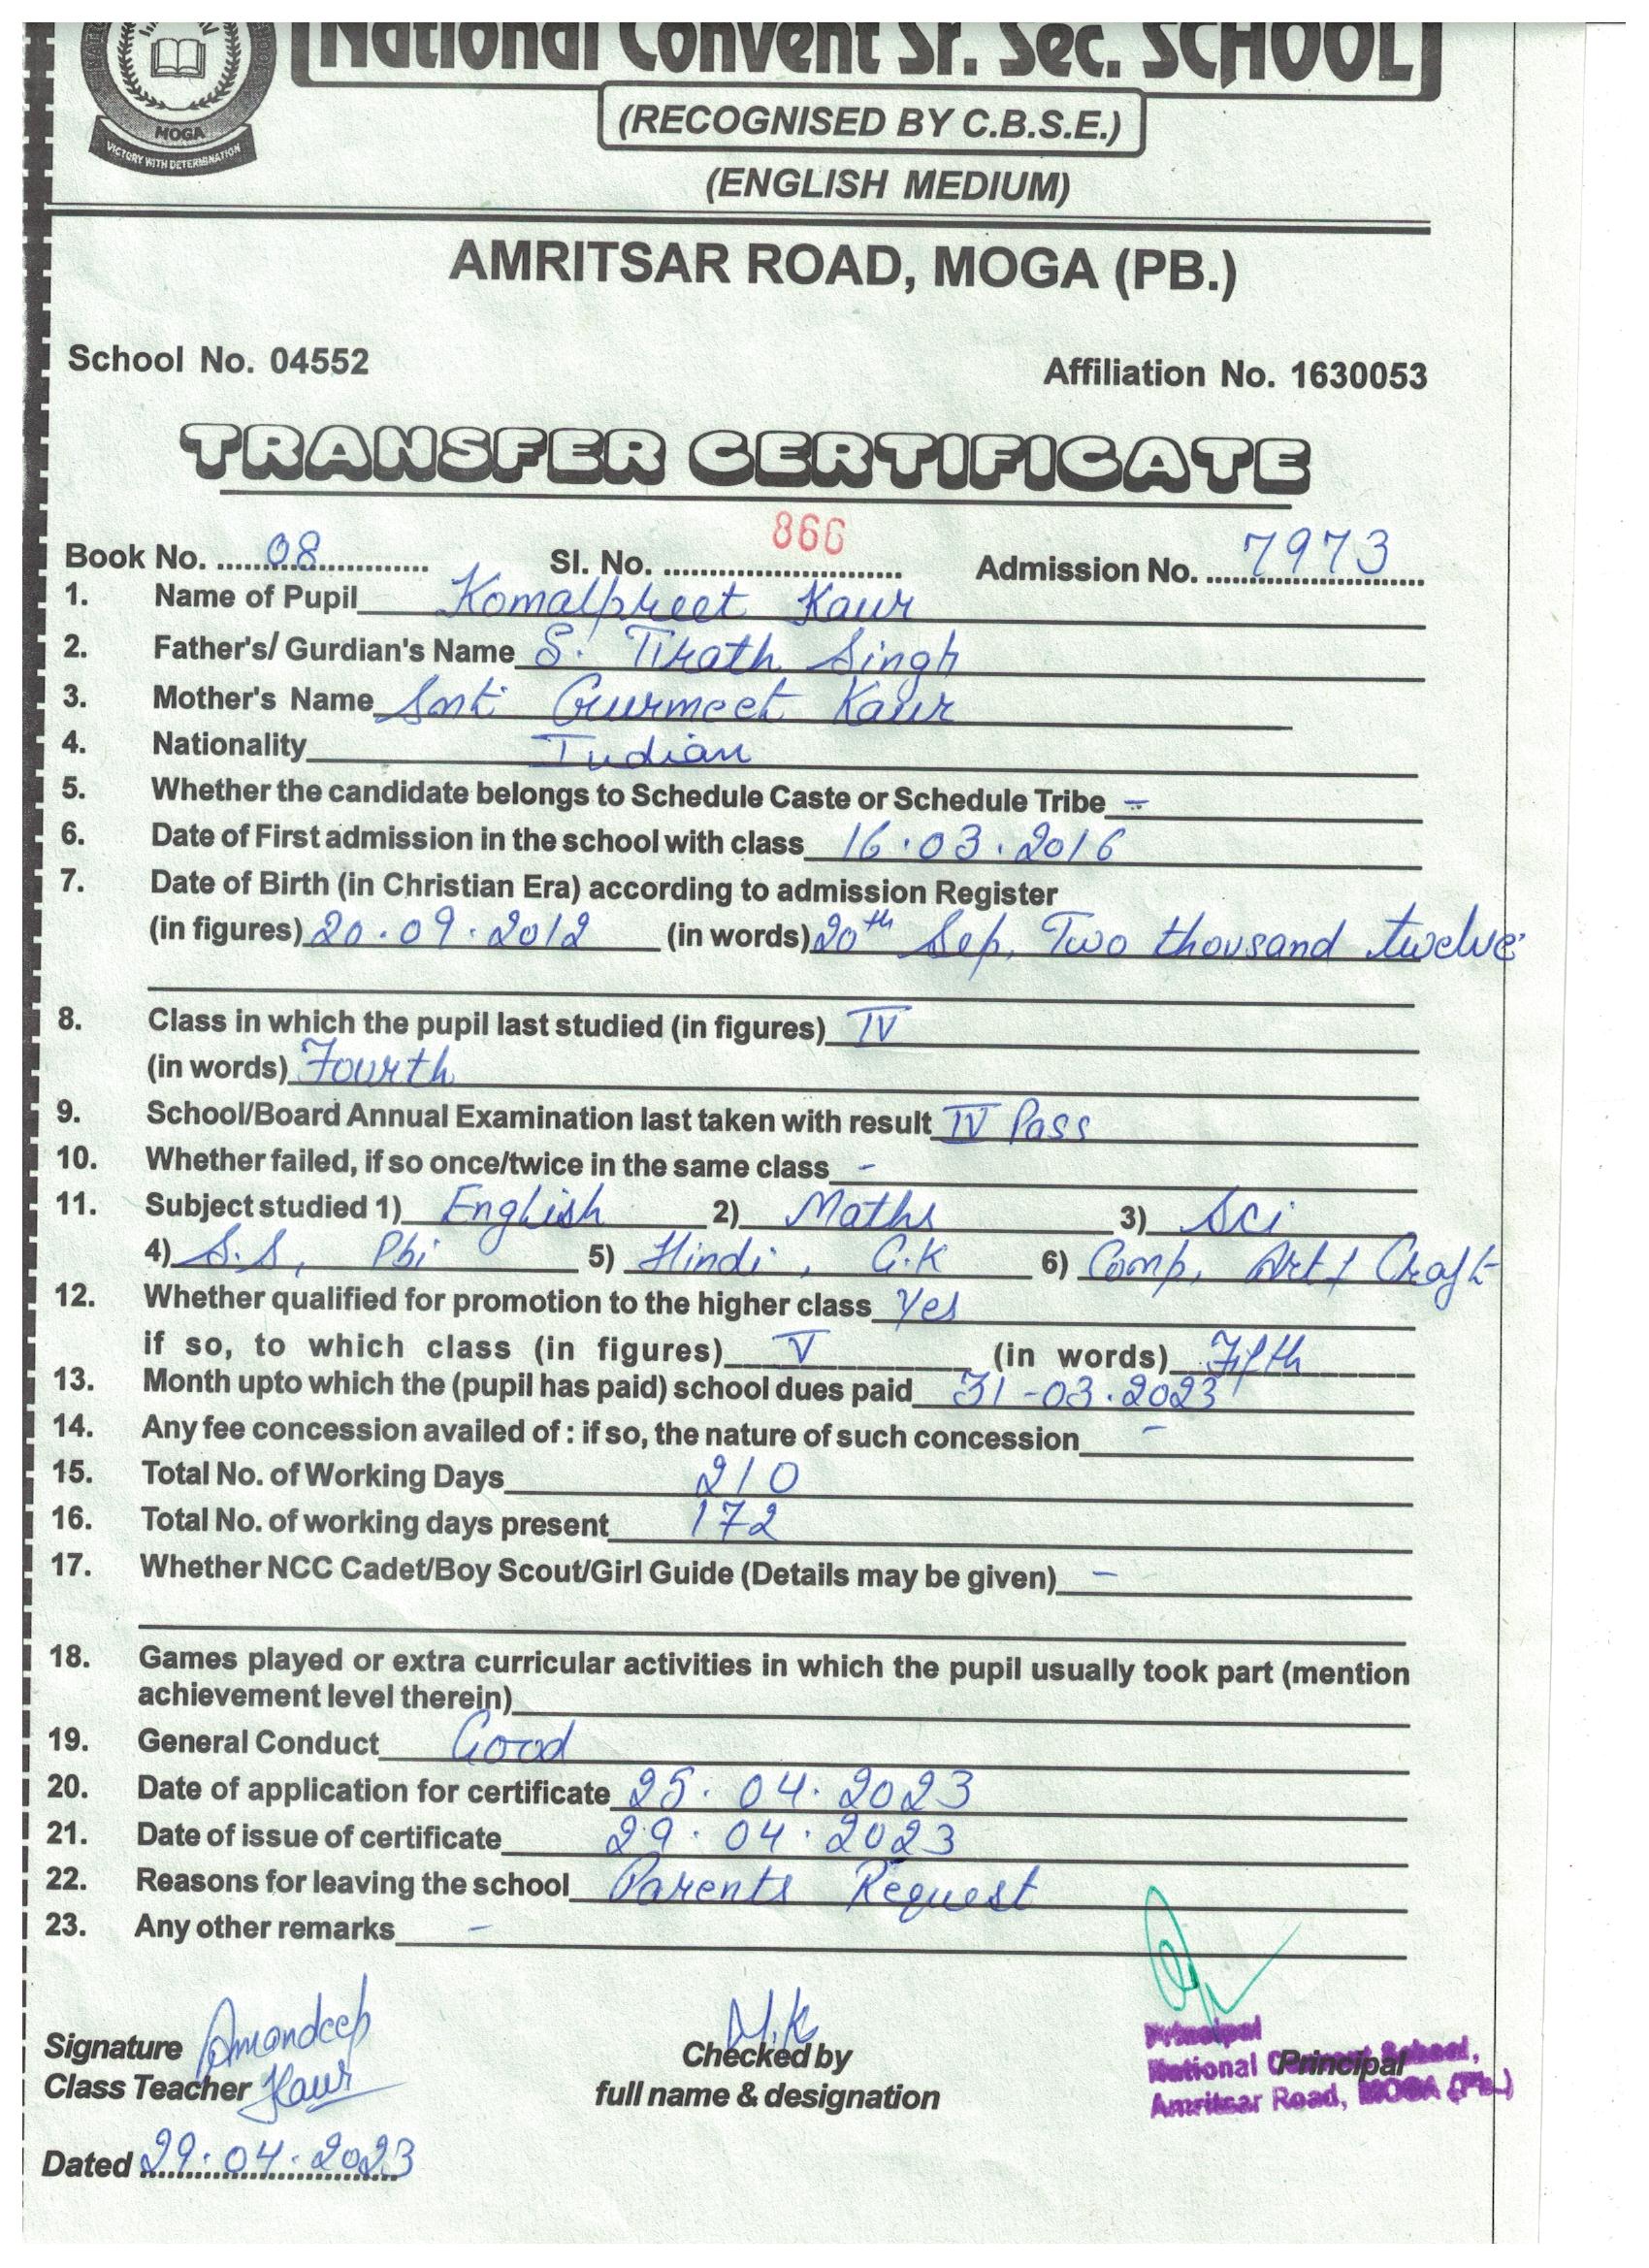 National Convent Sr. Sec. SCHOOL
MOGA
VICTORY WITH DETERMINATION
(RECOGNISED BY C.B.S.E.)
(ENGLISH MEDIUM)
AMRITSAR ROAD, MOGA (PB.)
School No. 04552 Affiliation No. 1630053
TRANSFER CERTIFICATE
Book No. 08 Sl. No. 866 Admission No. 7973
1. Name of Pupil Komalpreet Kaur
2. Father's/ Gurdian's Name S. Tirath Singh
3. Mother's Name Smt. Gurmeet Kaur
4. Nationality Indian
5. Whether the candidate belongs to Schedule Caste or Schedule Tribe -
6. Date of First admission in the school with class 16.03.2016
7. Date of Birth (in Christian Era) according to admission Register
(in figures) 20.09.2012 (in words) 20th Sep. Two thousand twelve
8. Class in which the pupil last studied (in figures) IV
(in words) Fourth
9. School/Board Annual Examination last taken with result IV Pass
10. Whether failed, if so once/twice in the same class -
11. Subject studied 1) English 2) Maths 3) Sci
4) S.S, Pbi 5) Hindi, G.K 6) Comp, Art/ Craft
12. Whether qualified for promotion to the higher class Yes
if so, to which class (in figures) V (in words) Fifth
13. Month upto which the (pupil has paid) school dues paid 31-03.2023
14. Any fee concession availed of : if so, the nature of such concession -
15. Total No. of Working Days 210
16. Total No. of working days present 172
17. Whether NCC Cadet/Boy Scout/Girl Guide (Details may be given) -
18. Games played or extra curricular activities in which the pupil usually took part (mention
achievement level therein)
19. General Conduct Good
20. Date of application for certificate 25.04.2023
21. Date of issue of certificate 29.04.2023
22. Reasons for leaving the school Parents Request
23. Any other remarks -
Signature Amandeep
Class Teacher Kaur
Checked by
full name & designation
Principal
Principal
National Convent School,
Amritsar Road, MOGA (Pb.)
Dated 29.04.2023